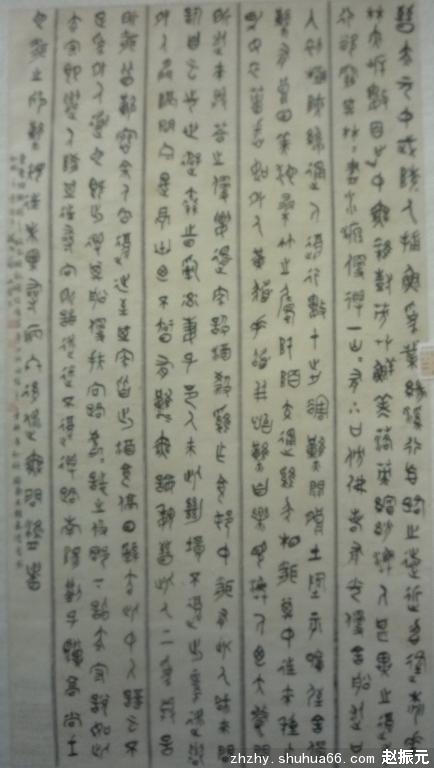 晉太元中武陵人捕魚為業緣溪行忘路之遠近忽逢桃花
林夾岸數百步中無雜樹芳草鮮美落英繽紛漁人甚異之復前
行欲窮其林林盡水源便得一山山有小口髣髴若有光便舍船從口
入初極狹纔通人復行數十步豁然開朗土地平曠屋舍儼
然有良田美池桑竹之屬阡陌交通雞犬相聞其中往來種作
男女衣著悉如外人黃髮垂髫並怡然自樂見漁人乃大驚問
所從來具答之便要還家設酒殺雞作食村中聞有此人咸來問
訊自云先世避秦時亂率妻子邑人來此絕境不復出焉遂與
外人間隔問今是何世乃不知有漢無論魏晉此人一一為具言
所聞皆歎惋餘人各復延至其家皆出酒食停數日辭去此中人語云不
足為外人道也既出得其船便扶向路處處誌之及郡下詣太守說如此
太守即遣人隨其往尋向所誌遂迷不復得路南陽劉子驥高尚士
也聞之欣然規往未果尋病終後遂無問津者
zhzhy.shuhua66.com 赵振元